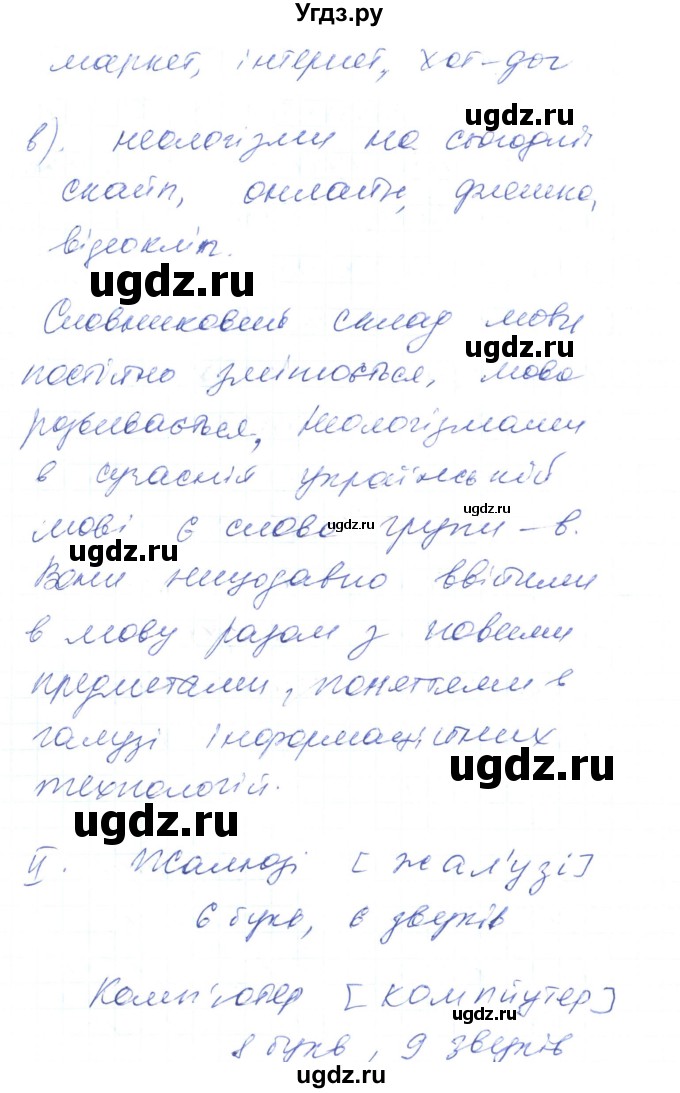 Угдз.ру
маркет, інтернет, хот-дог
ugdz.ru
в). неологізми на сьогодні:
скайп, онлайн, флешка,
відеокліп.
ugdz.ru
Словниковень склад мови
ugdz.ru
постійно змінюється, мова
розвивається, Неологізмами
в сучасній українській
ugdz.ru
мові є слова групи - в.
ugdz.ru
ugdz.ru
Вони нещодавно ввійшли
в мову разом з новими
предметами, поняттями в
галузі інформаційних
ugdz.ru
технологій.
ugdz.ru
II. Жалюзі [жал'узі]
6 букв, 6 звуків
Комп'ютер [компйутер]
ugdz.ru
8 букв, 9 звуків
ugdz.ru